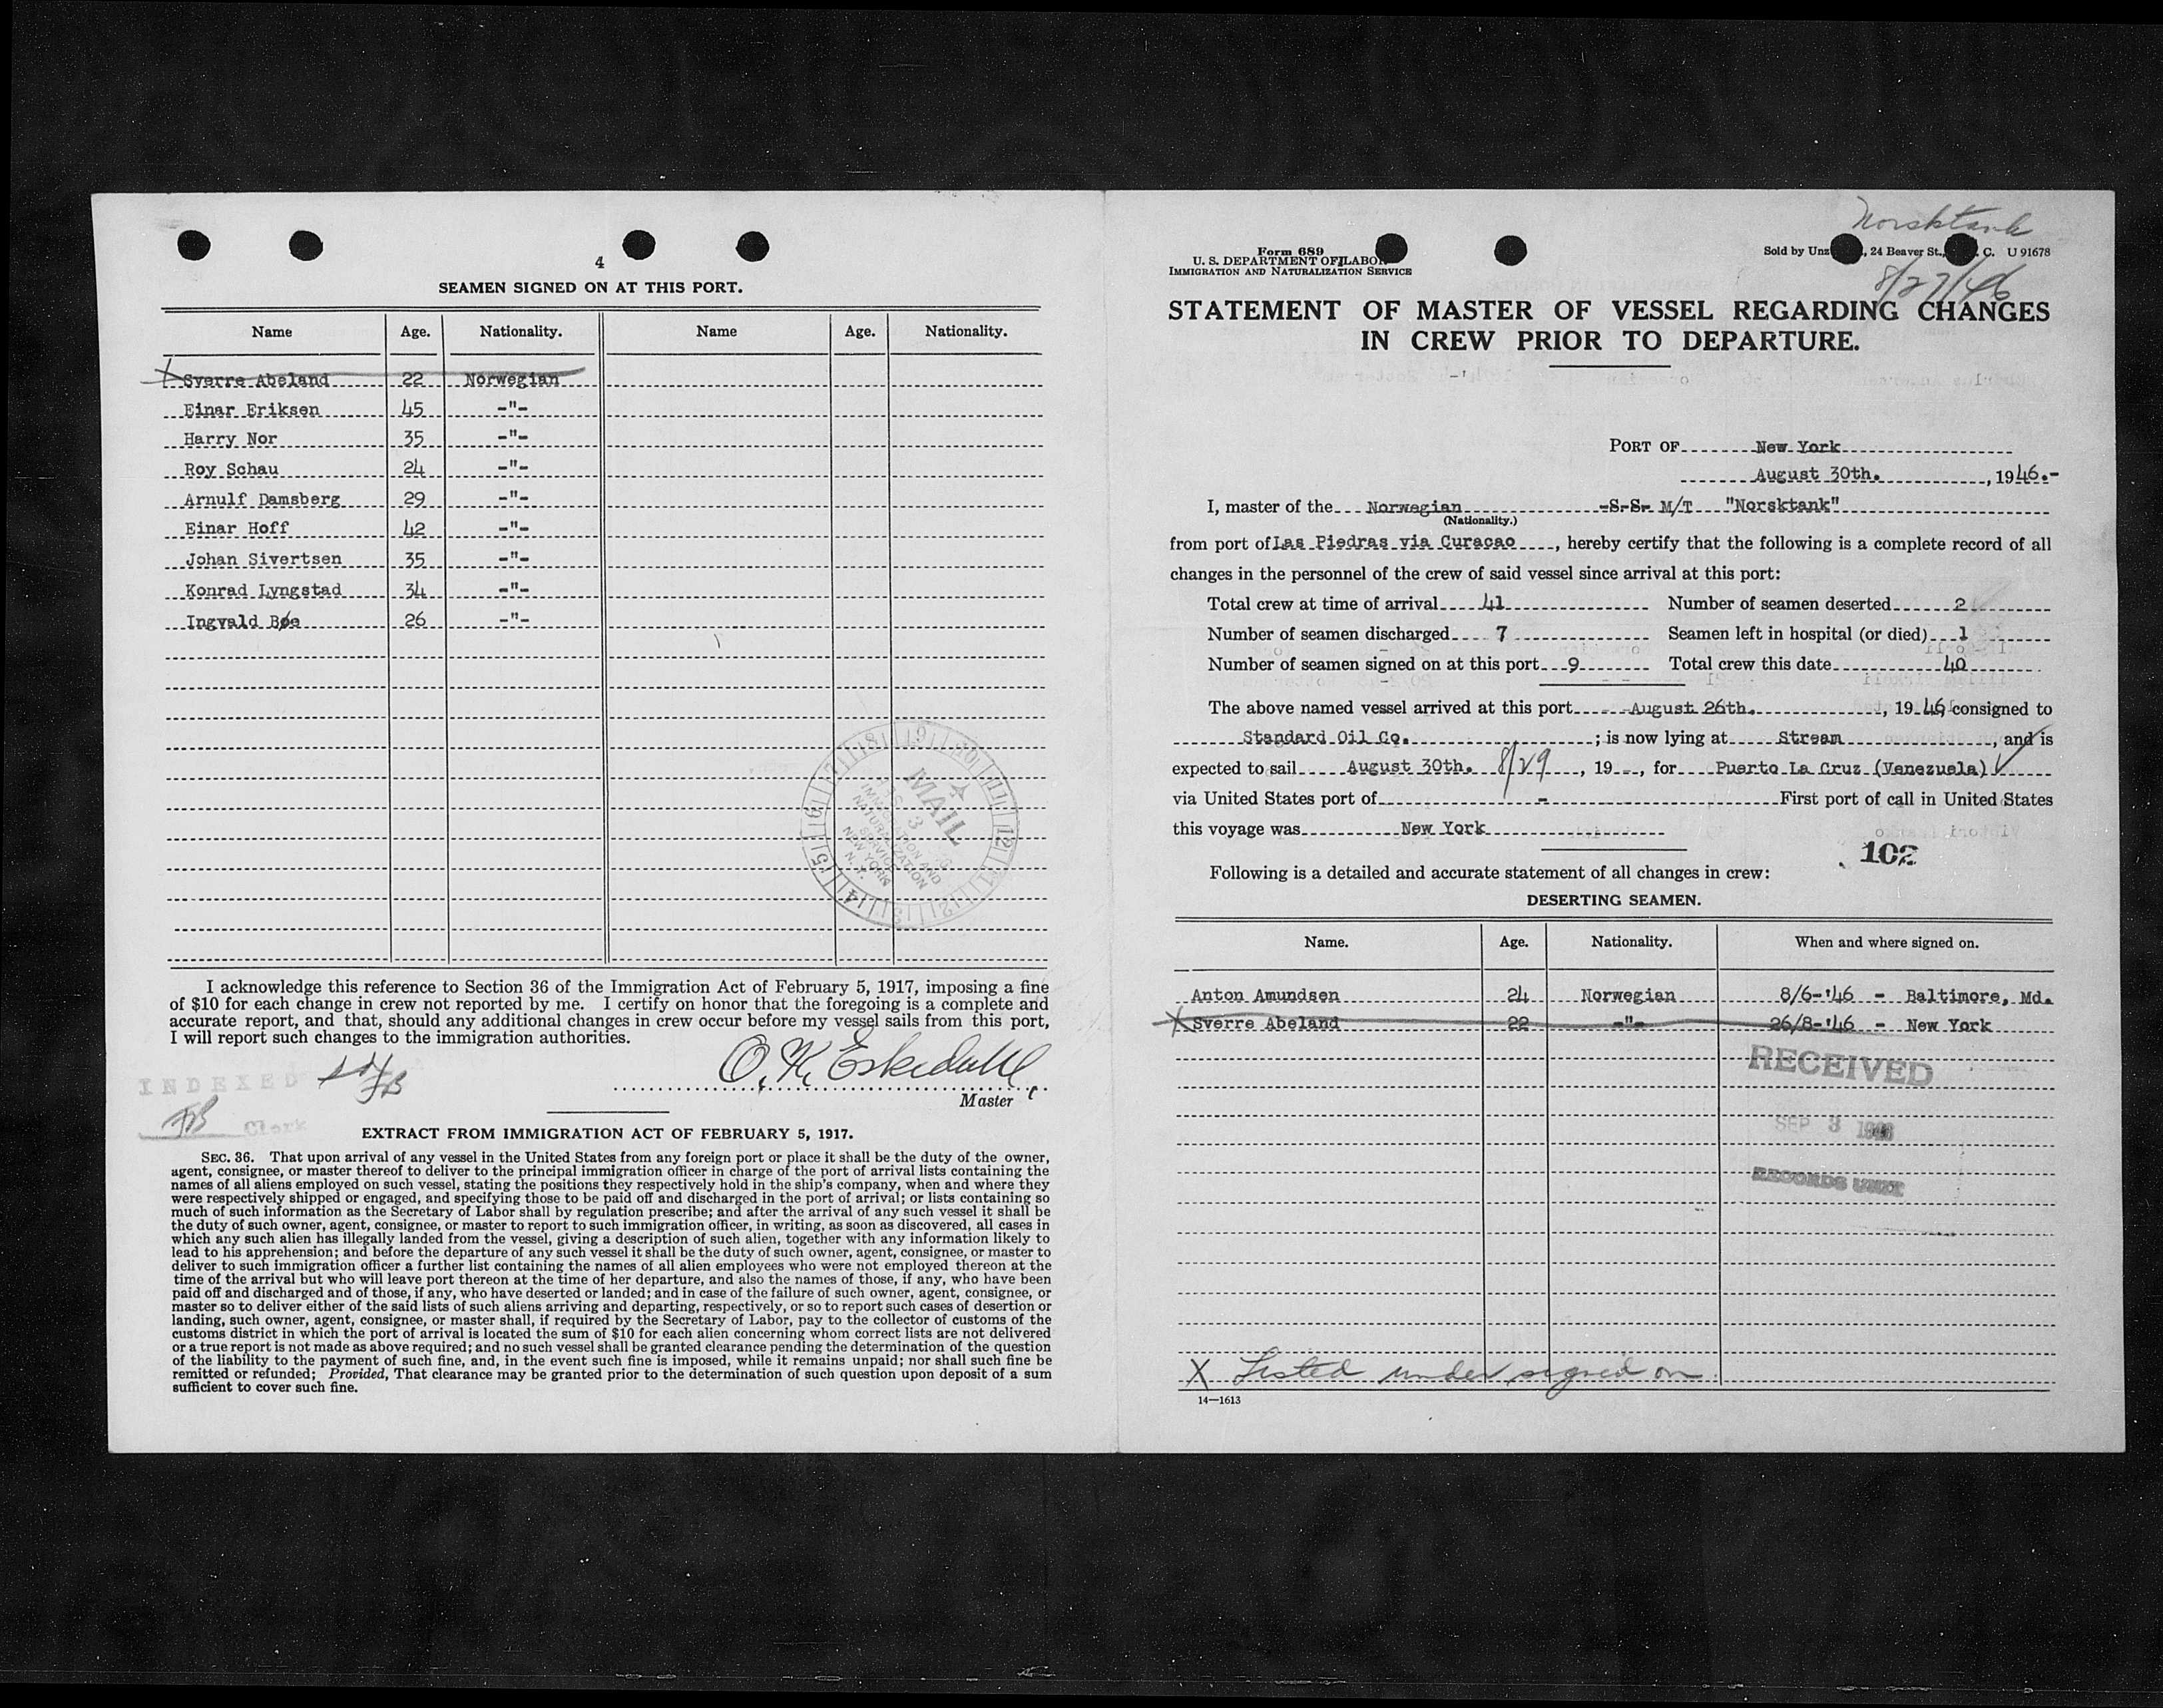 4
SEAMEN SIGNED ON AT THIS PORT.
Name Age. Nationality. Name Age. Nationality.
X Sverre Abeland 22 Norwegian
Einar Eriksen 45 -"-
Harry Nor 35 -"-
Roy Schau 24 -"-
Arnulf Damsberg 29 -"-
Einar Hoff 42 -"-
Johan Sivertsen 35 -"-
Konrad Lyngstad 34 -"-
Ingvald Bøe 26 -"-
MAIL
IMMIGRATION AND
NATURALIZATION
SERVICE
NEW YORK
N. Y.
I acknowledge this reference to Section 36 of the Immigration Act of February 5, 1917, imposing a fine
of $10 for each change in crew not reported by me. I certify on honor that the foregoing is a complete and
accurate report, and that, should any additional changes in crew occur before my vessel sails from this port,
I will report such changes to the immigration authorities.
INDEXED
Clerk
Master
EXTRACT FROM IMMIGRATION ACT OF FEBRUARY 5, 1917.
SEC. 36. That upon arrival of any vessel in the United States from any foreign port or place it shall be the duty of the owner,
agent, consignee, or master thereof to deliver to the principal immigration officer in charge of the port of arrival lists containing the
names of all aliens employed on such vessel, stating the positions they respectively hold in the ship's company, when and where they
were respectively shipped or engaged, and specifying those to be paid off and discharged in the port of arrival; or lists containing so
much of such information as the Secretary of Labor shall by regulation prescribe; and after the arrival of any such vessel it shall be
the duty of such owner, agent, consignee, or master to report to such immigration officer, in writing, as soon as discovered, all cases in
which any such alien has illegally landed from the vessel, giving a description of such alien, together with any information likely to
lead to his apprehension; and before the departure of any such vessel it shall be the duty of such owner, agent, consignee, or master to
deliver to such immigration officer a further list containing the names of all alien employees who were not employed thereon at the
time of the arrival but who will leave port thereon at the time of her departure, and also the names of those, if any, who have been
paid off and discharged and of those, if any, who have deserted or landed; and in case of the failure of such owner, agent, consignee, or
master so to deliver either of the said lists of such aliens arriving and departing, respectively, or so to report such cases of desertion or
landing, such owner, agent, consignee, or master shall, if required by the Secretary of Labor, pay to the collector of customs of the
customs district in which the port of arrival is located the sum of $10 for each alien concerning whom correct lists are not delivered
or a true report is not made as above required; and no such vessel shall be granted clearance pending the determination of the question
of the liability to the payment of such fine, and, in the event such fine is imposed, while it remains unpaid; nor shall such fine be
remitted or refunded; Provided, That clearance may be granted prior to the determination of such question upon deposit of a sum
sufficient to cover such fine.
Norsktank
Form 689
U. S. DEPARTMENT OF LABOR
IMMIGRATION AND NATURALIZATION SERVICE
Sold by Unz , 24 Beaver St., . C. U 91678
8/27/46
STATEMENT OF MASTER OF VESSEL REGARDING CHANGES
IN CREW PRIOR TO DEPARTURE.
PORT OF New York
August 30th. , 1946.-
I, master of the Norwegian S.S. M/T "Norsktank"
(Nationality.)
from port of Las Piedras via Curacao , hereby certify that the following is a complete record of all
changes in the personnel of the crew of said vessel since arrival at this port:
Total crew at time of arrival 41 Number of seamen deserted 2
Number of seamen discharged 7 Seamen left in hospital (or died) 1
Number of seamen signed on at this port 9 Total crew this date 40
The above named vessel arrived at this port August 26th. , 19 46, consigned to
Standard Oil Co. ; is now lying at Stream , and is
expected to sail August 30th. 8/29 , 19 , for Puerto La Cruz (Venezuela)
via United States port of - First port of call in United States
this voyage was New York
102
Following is a detailed and accurate statement of all changes in crew:
DESERTING SEAMEN.
Name. Age. Nationality. When and where signed on.
Anton Amundsen 24 Norwegian 8/6-'46 - Baltimore, Md.
X Sverre Abeland 22 -"- 26/8-'46 - New York
RECEIVED
SEP 3 1946
RECORDS UNIT
X Listed under signed on.
14—1613